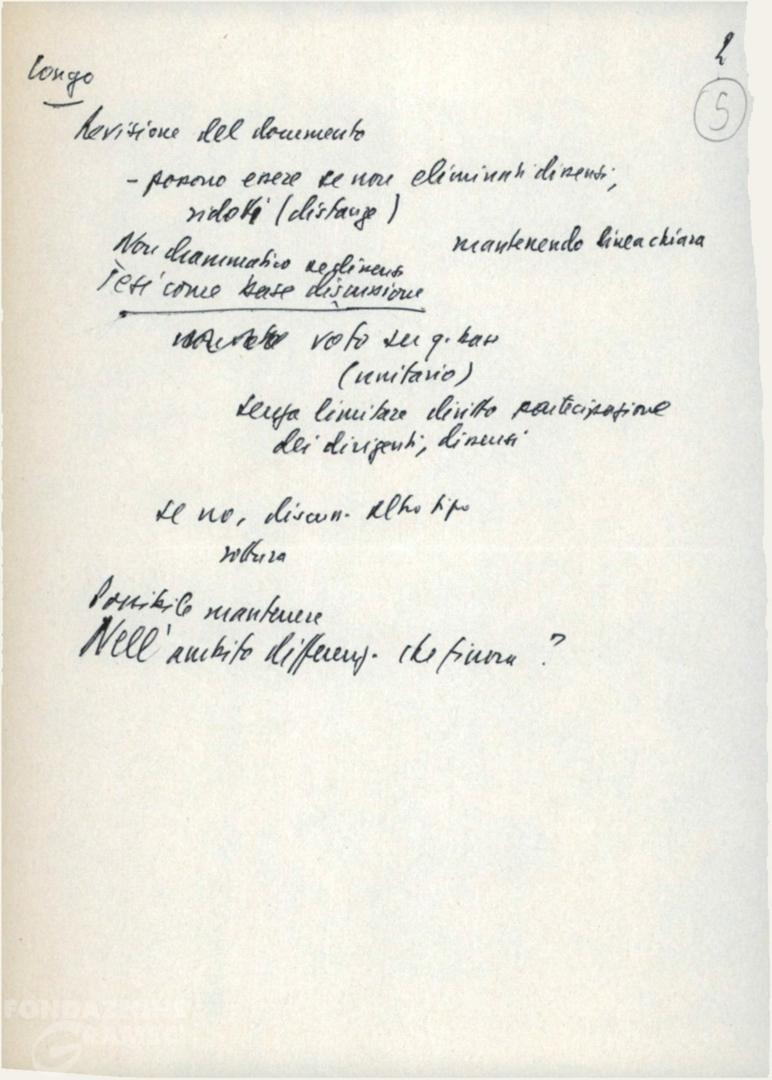 2
5
Longo
Revisione del documento
- possono essere se non eliminati dissensi,
ridotti (distanze)
mantenendo linea chiara
Non drammatico se dissensi
Tesi come base discussione
voto su q. base
(unitario)
senza limitare diritto partecipazione
dei dirigenti, dissensi
se no, discuss. altro tipo
rottura
Possibile mantenere
Nell'ambito differenz. che finora ?
FONDAZIONE
GRAMSCI